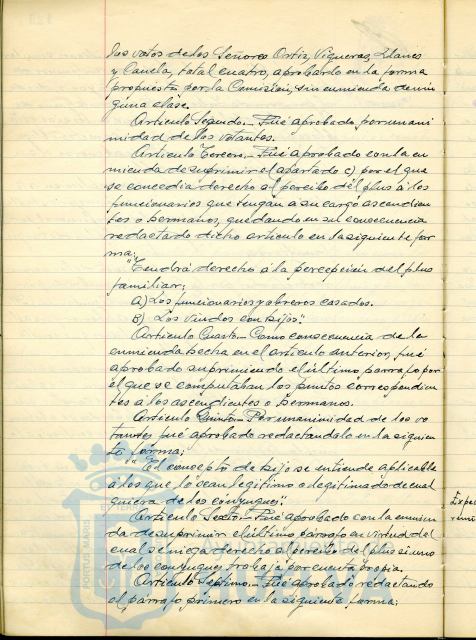 los votos de los Señores Ortiz, Vigueras, Llanes
y Canela, total cuatro, aprobarlo en la forma
propuesta por la Comisión, sin enmienda de nin
guna clase.
Artículo Segundo.- Fué aprobado por unani
midad de los votantes.
Artículo Tercero.- Fué aprobado con la en
mienda de suprimir el apartado c) por el que
se concedía derecho al percibo del plus á los
funcionarios que tengan a su cargo ascendien
tes o hermanos, quedando en su consecuencia
redactado dicho artículo en la siguiente for
ma:
"Tendrá derecho á la percepción del plus
familiar;
A) Los funcionarios y obreros casados.
B) Los viudos con hijos".
Artículo Cuarto.- Como consecuencia de la
enmienda hecha en el artículo anterior, fué
aprobado suprimiendo el último párrafo por
el que se computaban los puntos correspondien
tes a los ascendientes o hermanos.
Artículo Quinto.- Por unanimidad de los vo
tantes fué aprobado redactandolo en la siguien
te forma;
"El concepto de hijo se entiende aplicable
a los que lo sean legítimo o legitimado de cual
quiera de los conyuges".
Artículo Sexto.- Fué aprobado con la enmien
da de suprimir el último párrafo en virtud del
cual se niega derecho al percibo del plus si uno
de los conyuges trabaja por cuenta propia.
Artículo Séptimo.- Fué aprobado redactando
el párrafo primero en la siguiente forma:
PORTUS MARIS
ET TERRE